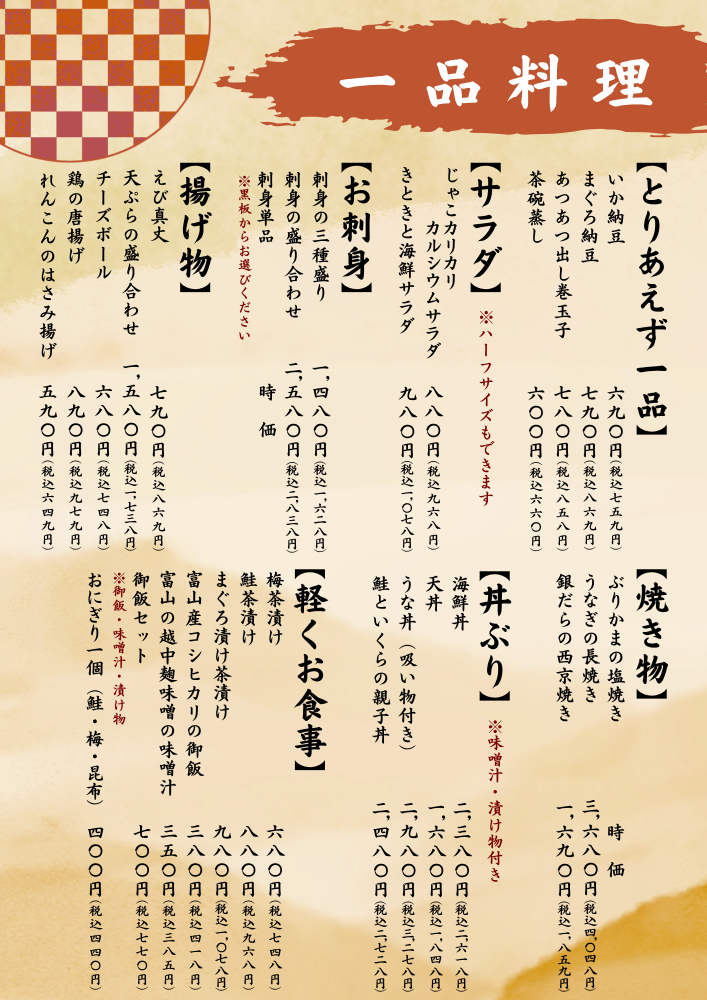 一品料理
【とりあえず一品】
いか納豆 六九〇円(税込七五九円)
まぐろ納豆 七九〇円(税込八六九円)
あつあつ出し巻玉子 七八〇円(税込八五八円)
茶碗蒸し 六〇〇円(税込六六〇円)
【サラダ】 ※ハーフサイズもできます
じゃこカリカリ
カルシウムサラダ 八八〇円(税込九六八円)
きときと海鮮サラダ 九八〇円(税込一,〇七八円)
【お刺身】
刺身の三種盛り 一,四八〇円(税込一,六二八円)
刺身の盛り合わせ 二,五八〇円(税込二,八三八円)
刺身単品 時価
※黒板からお選びください
【揚げ物】
えび真丈 七九〇円(税込八六九円)
天ぷらの盛り合わせ 一,五八〇円(税込一,七三八円)
チーズボール 六八〇円(税込七四八円)
鶏の唐揚げ 八九〇円(税込九七九円)
れんこんのはさみ揚げ 五九〇円(税込六四九円)
【焼き物】
ぶりかまの塩焼き 時価
うなぎの長焼き 三,六八〇円(税込四,〇四八円)
銀だらの西京焼き 一,六九〇円(税込一,八五九円)
【丼ぶり】 ※味噌汁・漬け物付き
海鮮丼 二,三八〇円(税込二,六一八円)
天丼 一,六八〇円(税込一,八四八円)
うな丼(吸い物付き) 二,九八〇円(税込三,二七八円)
鮭といくらの親子丼 二,四八〇円(税込二,七二八円)
【軽くお食事】
梅茶漬け 六八〇円(税込七四八円)
鮭茶漬け 八八〇円(税込九六八円)
まぐろ漬け茶漬け 九八〇円(税込一,〇七八円)
富山産コシヒカリの御飯 三八〇円(税込四一八円)
富山の越中麹味噌の味噌汁 三五〇円(税込三八五円)
御飯セット 七〇〇円(税込七七〇円)
※御飯・味噌汁・漬け物
おにぎり一個(鮭・梅・昆布) 四〇〇円(税込四四〇円)